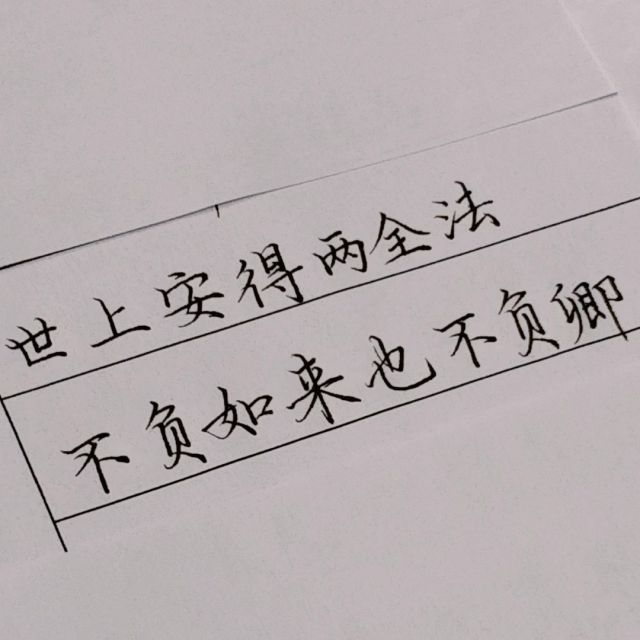 世上安得两全法
不负如来也不负卿